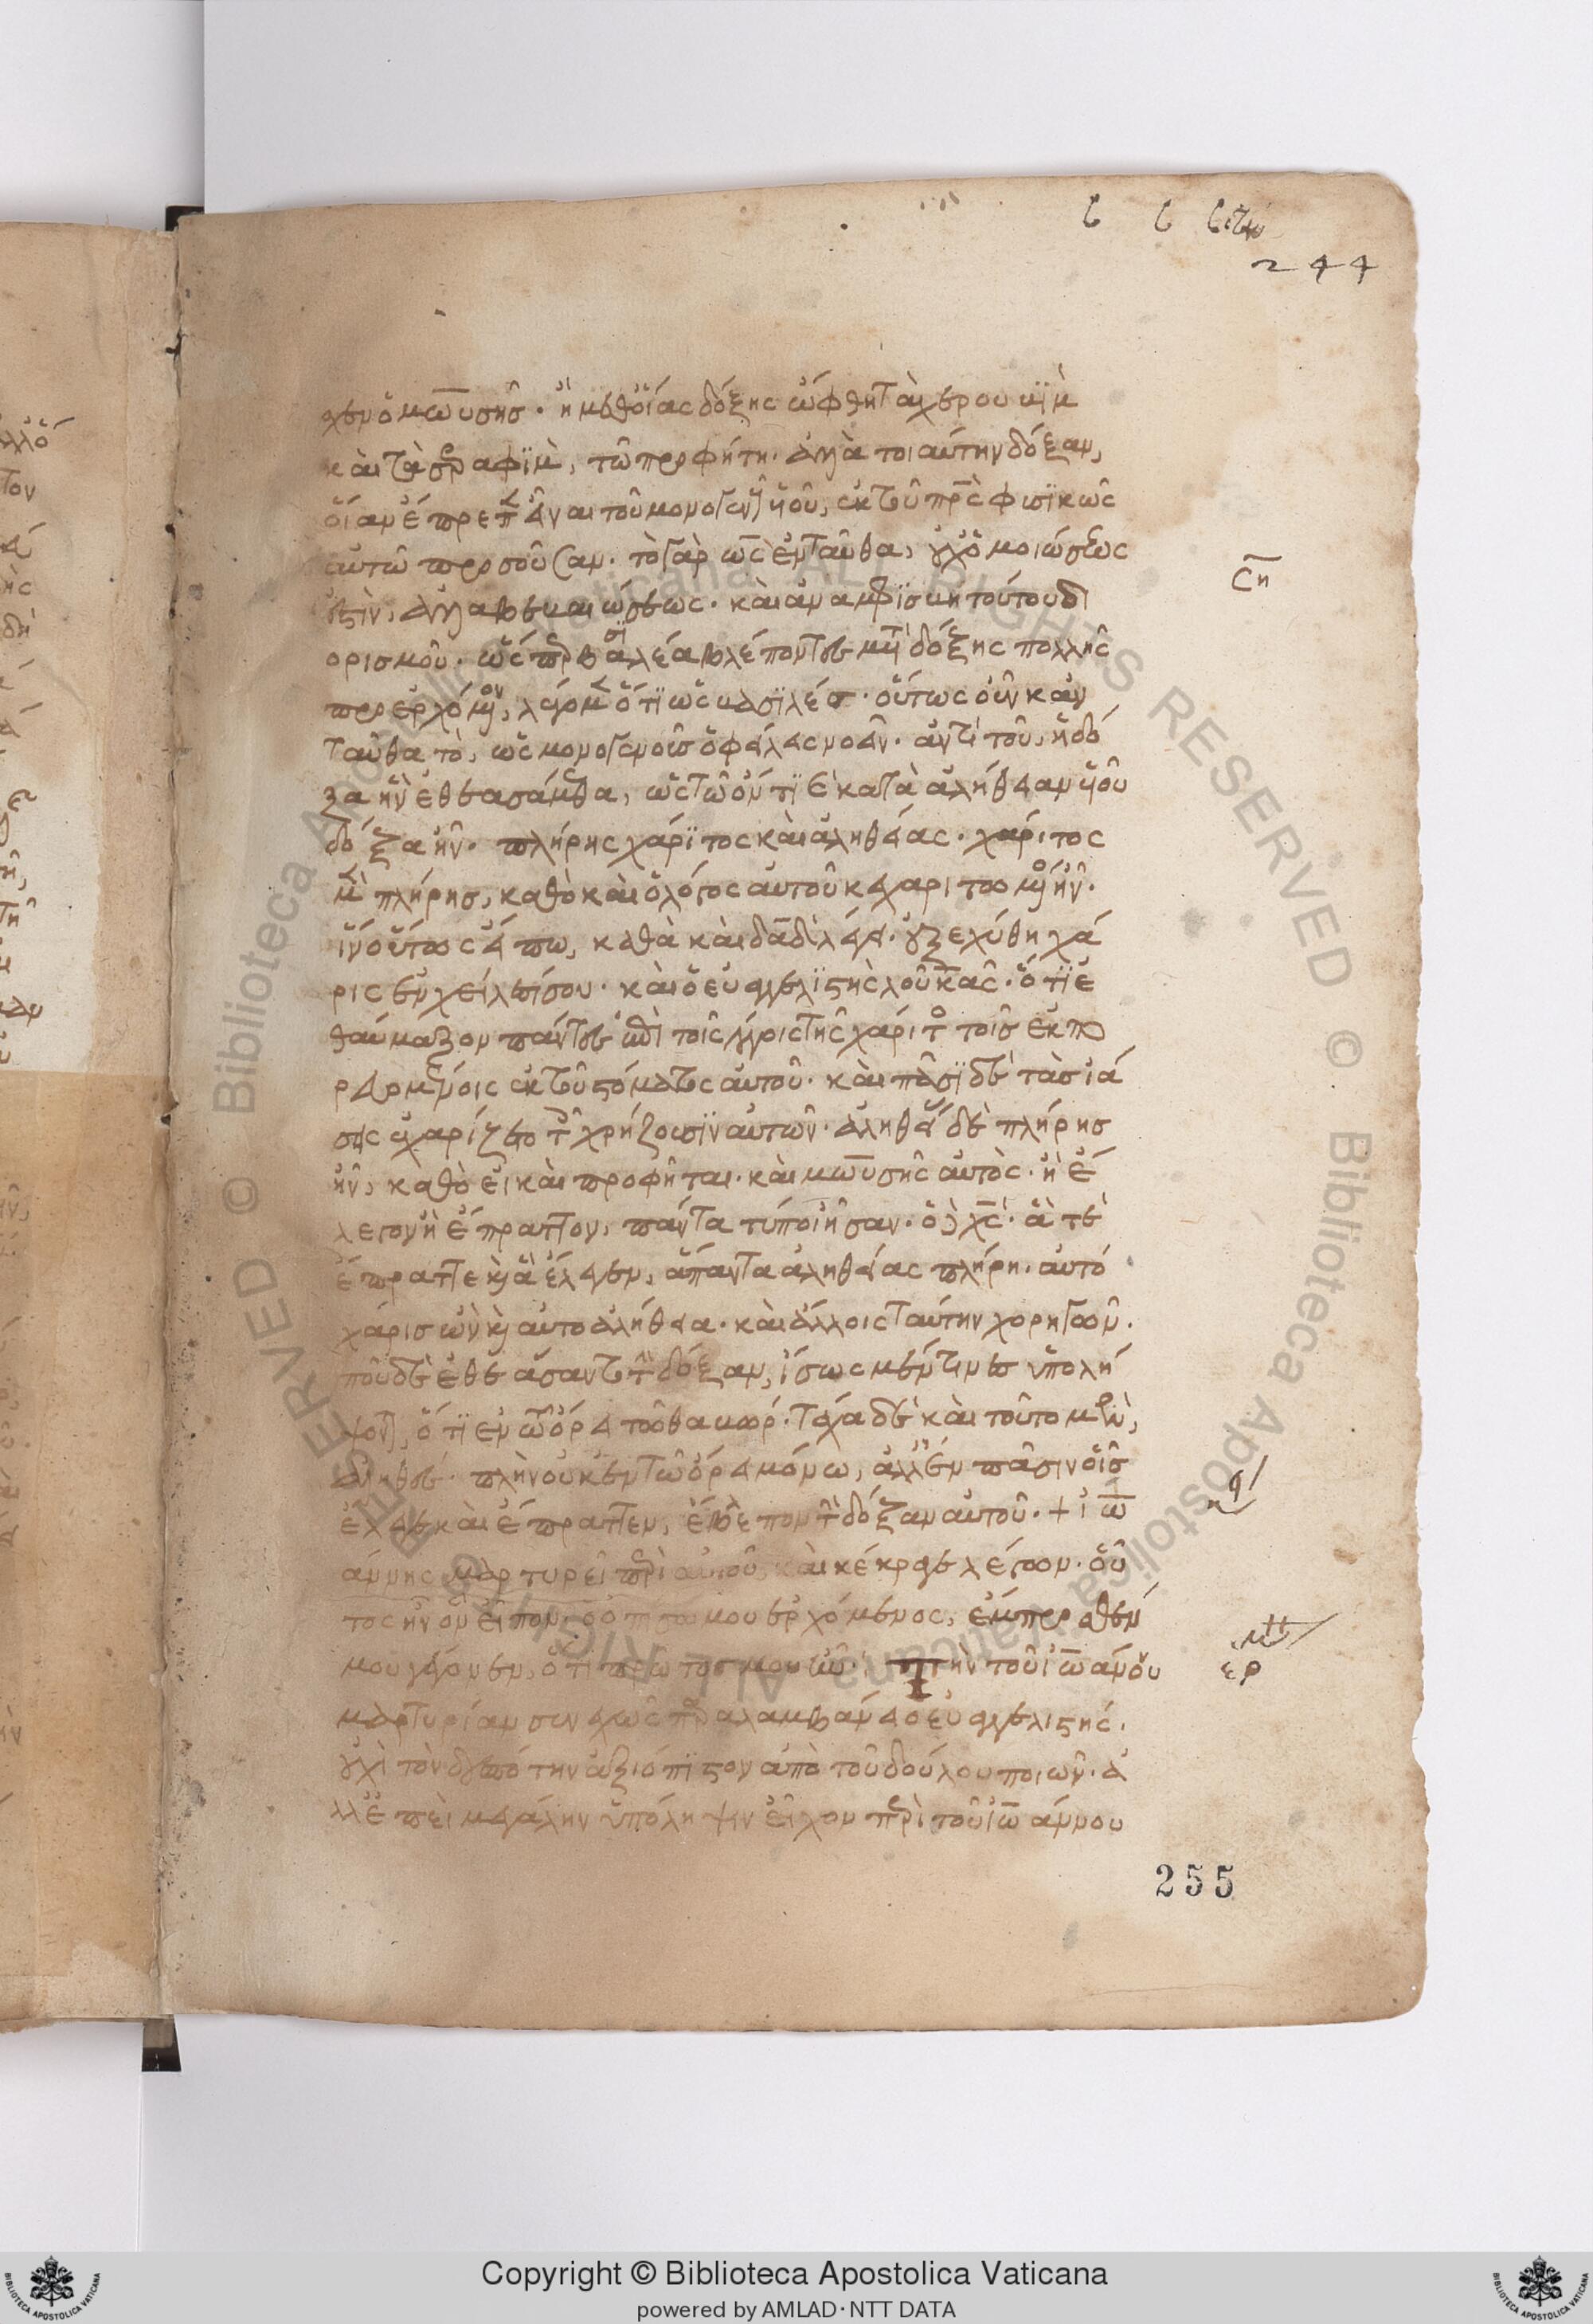 244
χεν ὁ μωϋσῆς· ἢ μεθ οἵας δόξης ὤφθη τὰ χερουβὶμ
καὶ τὰ σεραφὶμ, τῶ προφήτη. ἀλλὰ τοιαύτην δόξαν,
οἵαν ἔπρεπεν εἶναι τοῦ μονογενοῦς υἱοῦ, ἐκ τοῦ πρς φυσικῶς
αὐτῶ προσοῦσαν· τὸ γὰρ ὡς ἐνταῦθα, οὐχ ὁμοιώσεως
ἐστὶν, ἀλλὰ βεβαιώσεως· καὶ ἀναμφισβητούτου δι
ορισμοῦ· ὡς περ βασιλέα βλέποντες μετὰ δόξης πολλῆς
προερχόμενον, λέγομεν ὅτι ὡς βασιλεύς· οὕτως οὖν καν
ταῦθα τὸ, ὡς μονογενοῦς ὀφείλεις νοεῖν· ἀντὶ τοῦ, ἡ δό
ξα ἣν ἐθεασάμεθα, ὡς τῶ ὄντι καὶ κατὰ ἀλήθειαν υἱοῦ
δόξα ἦν· πλήρης χάριτος καὶ ἀληθείας· χάριτος
μὲν πλήρης, καθὸ καὶ ὁ λόγος αὐτοῦ κεχαριτωμένος ἦν·
ἵν οὕτως εἴπω, καθὰ καὶ δαδ λέγει· ἐξεχύθη χά
ρις ἐν χείλεσί σου· καὶ ὁ εὐαγγελιστὴς λουκᾶς· ὅτι ἐ
θαύμαζον πάντες ἐπὶ τοῖς λόγοις τῆς χάριτος τοῖς ἐκπο
ρευομένοις ἐκ τοῦ στόματος αὐτοῦ· καὶ πᾶσι δὲ τὰς ἰά
σεις ἐχαρίζετο τοῖς χρήζουσιν αὐτῶν· ἀληθείας δὲ πλήρης
ἦν, καθὸ εἰ καὶ προφῆται· καὶ μωϋσῆς αὐτὸς· ἢ ἔ
λεγον ἢ ἔπραττον, πάντα τύποι ἦσαν· ὁ δὲ χς· ἅ τε
ἔπραττε καὶ ἃ ἔλεγεν, ἅπαντα ἀληθείας πλήρη· αὐτό
χάρις ὢν καὶ αὐτοαλήθεια· καὶ ἄλλοις ταύτην χορηγῶν·
ποῦ δὲ ἐθεάσαντο τὴν δόξαν, ἴσως μέν τινες ὑπολή
ψονται, ὅτι ἐν τῶ ὄρει τῶ θαβώρ· τάχα δὲ καὶ τοῦτο μὲν,
ἀληθές· πλὴν οὐκ ἐν τῶ ὄρει μόνω, ἀλλ ἐν πᾶσιν οἷς
ἔλεγε καὶ ἔπραττεν, ἔβλεπον τὴν δόξαν αὐτοῦ· + ἰω
άννης μαρτυρεῖ περὶ αὐτοῦ καὶ κέκραγε λέγων· οὗ
τος ἦν ὃν εἶπον· ὁ ὀπίσω μου ἐρχόμενος, ἔμπροσθέν
μου γέγονεν, ὅτι πρῶτος μου ἦν· τὴν τοῦ ἰωάννου
μαρτυρίαν συνεχῶς παραλαμβάνει ὁ εὐαγγελιστής·
οὐχὶ τὸν δεσπότην ἀξιόπιστον ἀπὸ τοῦ δούλου ποιῶν· ἀ
λλ ἐπεὶ μεγάλην ὑπόληψιν εἶχον περὶ τοῦ ἰωάννου
255